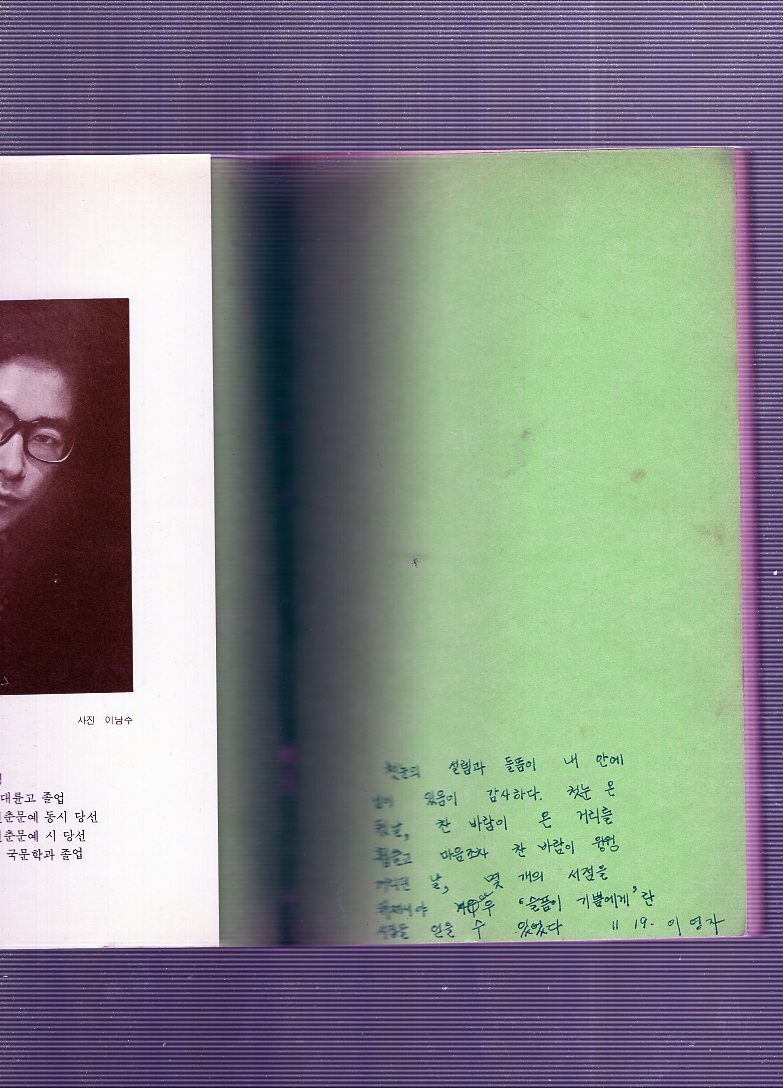 사진 이남수
대륜고 졸업
춘문예 동시 당선
춘문예 시 당선
국문학과 졸업
첫눈의 설렘과 들뜸이 내 안에
남아 있음이 감사하다. 첫눈 온
찬 바람이 온 거리를
휩쓸고 마음조차 찬 바람이 윙윙
거리던 날, 몇 개의 서점을
겨우 '슬픔이 기쁨에게'란
시집을 얻을 수 있었다 11 19. 이영자